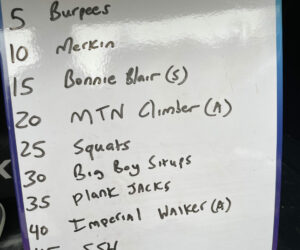 5 Burpees
10 Merkin
15 Bonnie Blair (S)
20 MTN Climber (A)
25 Squats
30 Big Boy Situps
35 Plank Jacks
40 Imperial Walker (A)
45 SSH